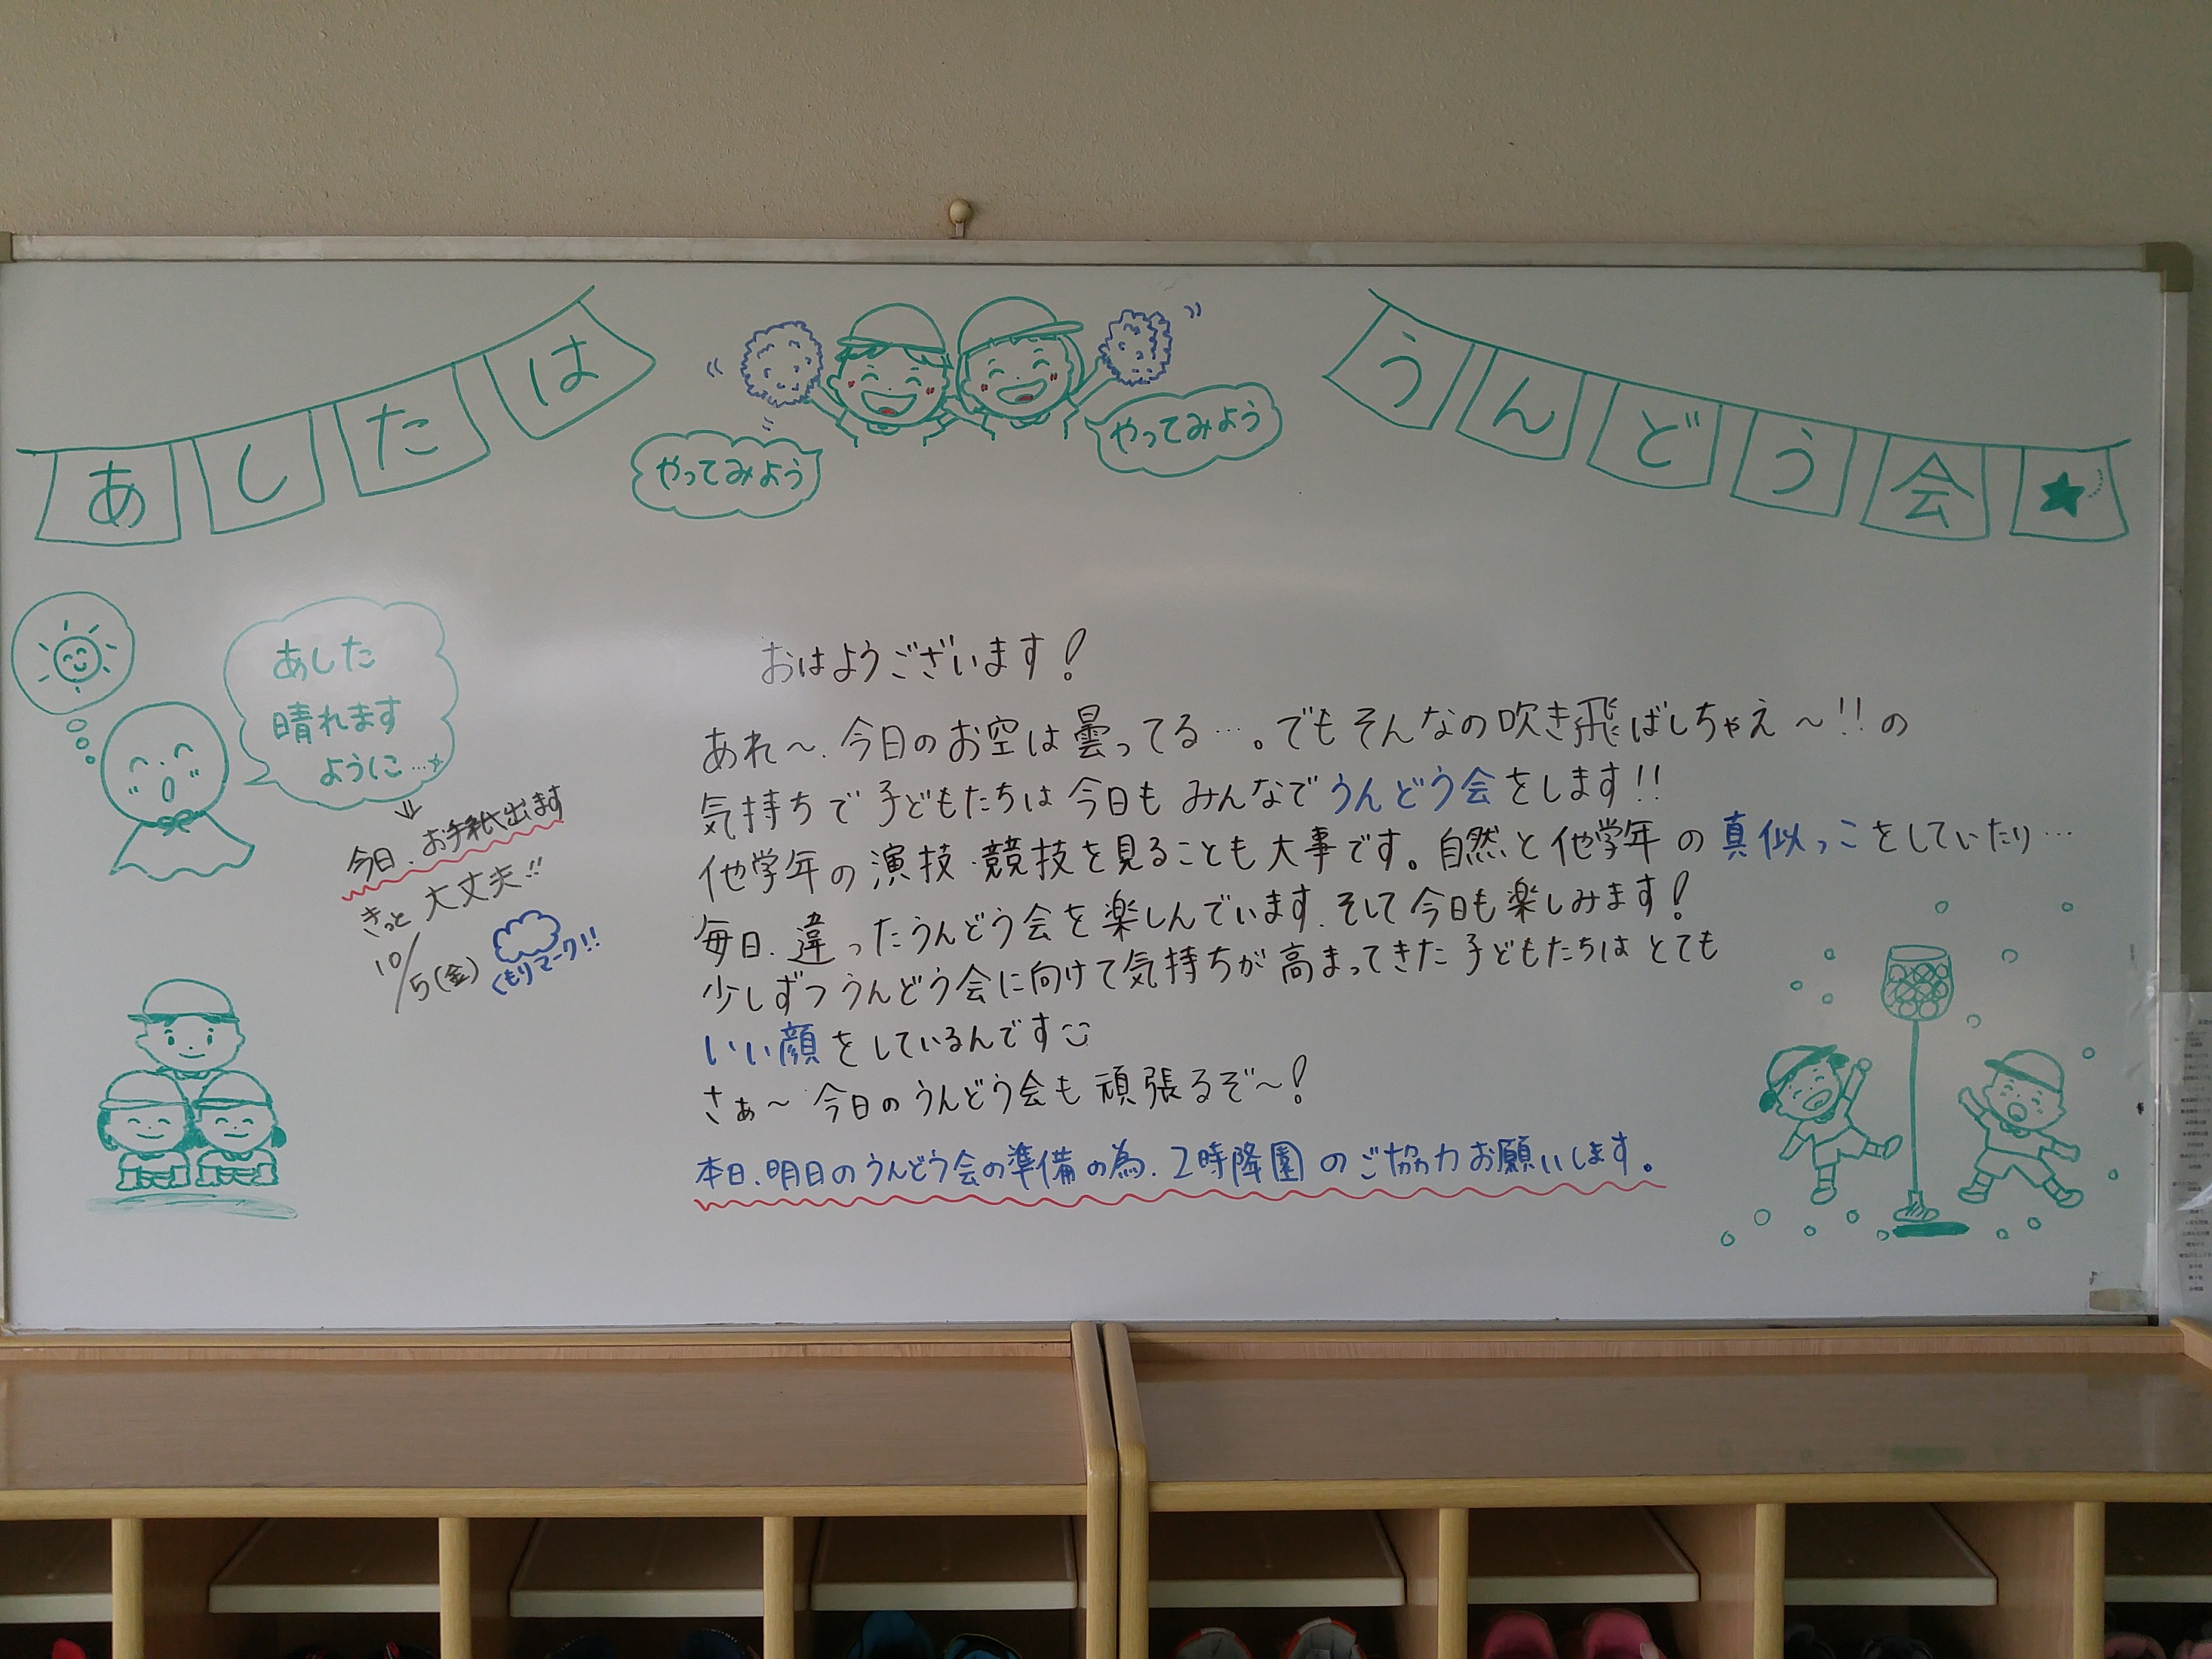 あしたは
うんどう会★
やってみよう
やってみよう
あした
晴れます
ように…☆
↓
今日、お手紙出ます
きっと大丈夫!!
10/5(金)
くもりマーク!!
おはようございます!
あれ〜、今日のお空は曇ってる…。でもそんなの吹き飛ばしちゃえ〜!!の
気持ちで子どもたちは今日もみんなでうんどう会をします!!
他学年の演技・競技を見ることも大事です。自然と他学年の真似っこをしていたり…
毎日、違ったうんどう会を楽しんでいます、そして今日も楽しみます!
少しずつうんどう会に向けて気持ちが高まってきた子どもたちはとても
いい顔をしているんです
さぁ〜今日のうんどう会も頑張るぞ〜!
本日、明日のうんどう会の準備の為、2時降園のご協力お願いします。